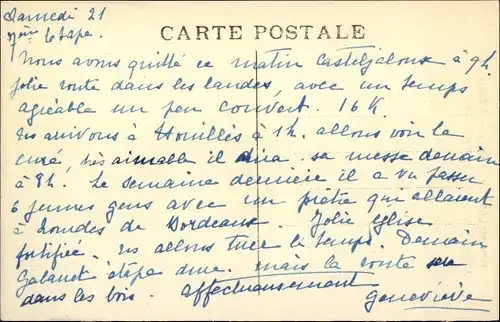 Samedi 21
7ème étape.
CARTE POSTALE
Nous avons quitté ce matin Casteljaloux à 9h.
jolie route dans les landes, avec un temps
agréable un peu couvert. 16 K.
ns arrivons à Houillès à 1h. allons voir le
curé, très aimable il dira sa messe demain
à 8h. La semaine dernière il a vu passer
6 jeunes gens avec un prêtre qui allaient
à Lourdes de Bordeaux. Jolie église
fortifiée. ns allons tuer le temps. Demain
étape dure. mais la route sera
dans les bois. affectueusement
Geneviève